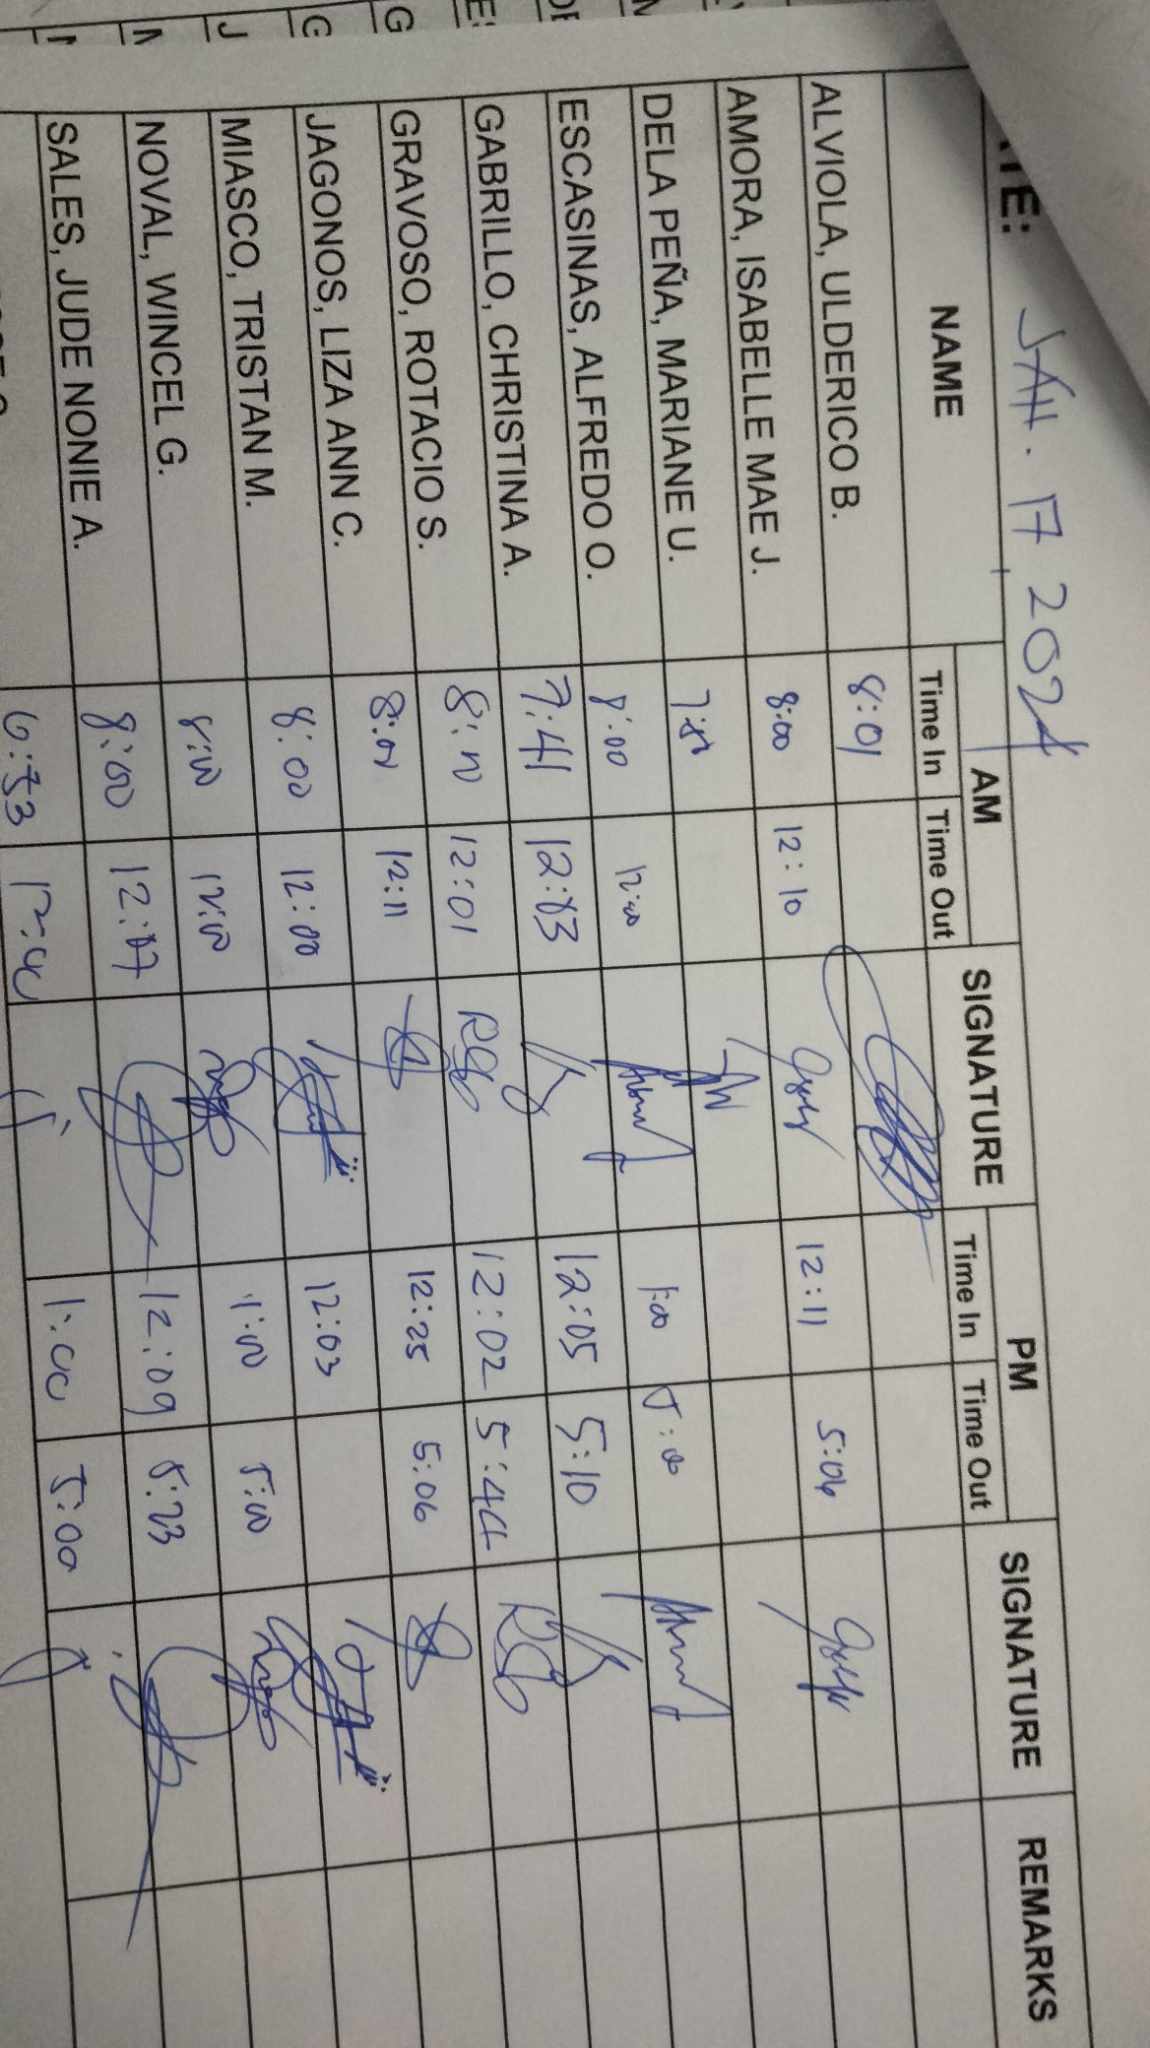 TE: JAN. 17, 2024
NAME AM SIGNATURE PM SIGNATURE REMARKS
Time In Time Out Time In Time Out
ALVIOLA, ULDERICO B. 8:01
AMORA, ISABELLE MAE J. 8:00 12:10 12:11 5:06
DELA PEÑA, MARIANE U.
ESCASINAS, ALFREDO O. 8:00 12:00 1:00 5:00
GABRILLO, CHRISTINA A. 7:41 12:03 12:05 5:10
GRAVOSO, ROTACIO S. 12:01 12:02 5:44
JAGONOS, LIZA ANN C. 12:11 12:25 5:06
MIASCO, TRISTAN M. 8:00 12:00 12:03
NOVAL, WINCEL G. 8:00 12:00 1:00 5:00
SALES, JUDE NONIE A. 8:00 12:07 12:09 5:23
6:53 12:00 1:00 5:00